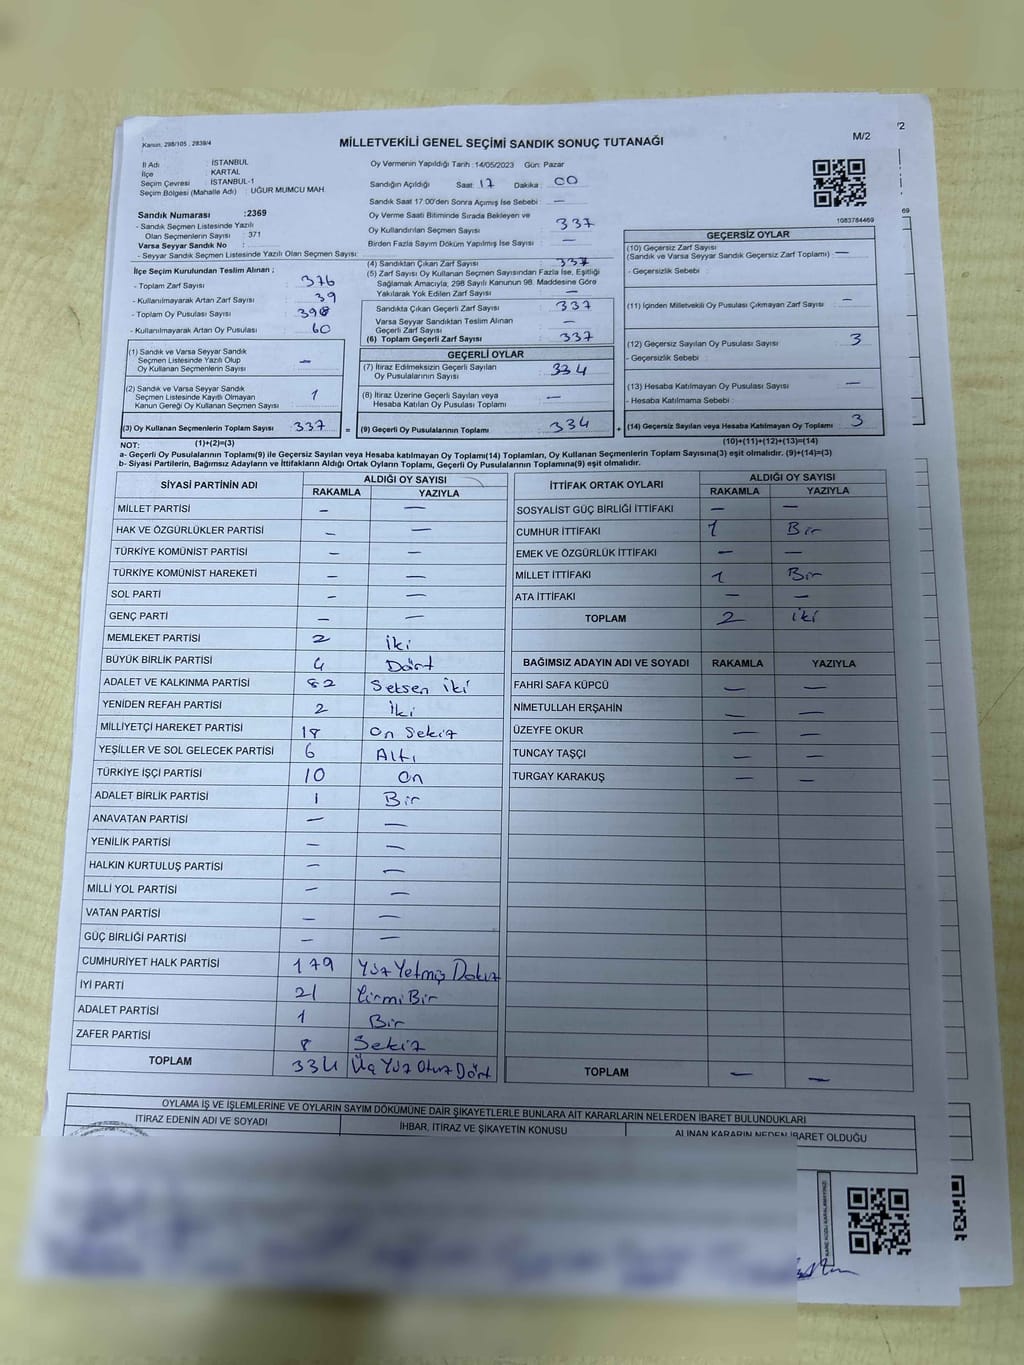 Kanun, 298/105 , 2839/4
MİLLETVEKİLİ GENEL SEÇİMİ SANDIK SONUÇ TUTANAĞI
M/2
/2
İl Adı : İSTANBUL
İlçe : KARTAL
Seçim Çevresi : İSTANBUL-1
Seçim Bölgesi (Mahalle Adı) : UĞUR MUMCU MAH.
Oy Vermenin Yapıldığı Tarih :14/05/2023 Gün: Pazar
Sandığın Açıldığı Saat: 17 Dakika : 00
Sandık Saat 17.00'den Sonra Açımış İse Sebebi : —
Oy Verme Saati Bitiminde Sırada Bekleyen ve
Oy Kullandırılan Seçmen Sayısı : 337
Birden Fazla Sayım Döküm Yapılmış İse Sayısı : —
1083784469
69
Sandık Numarası :2369
- Sandık Seçmen Listesinde Yazılı
Olan Seçmenlerin Sayısı : 371
Varsa Seyyar Sandık No :
- Seyyar Sandık Seçmen Listesinde Yazılı Olan Seçmen Sayısı:
İlçe Seçim Kurulundan Teslim Alınan ;
- Toplam Zarf Sayısı : 376
- Kullanılmayarak Artan Zarf Sayısı : 39
- Toplam Oy Pusulası Sayısı : 398
- Kullanılmayarak Artan Oy Pusulası : 60
(1) Sandık ve Varsa Seyyar Sandık
Seçmen Listesinde Yazılı Olup
Oy Kullanan Seçmenlerin Sayısı : —
(2) Sandık ve Varsa Seyyar Sandık
Seçmen Listesinde Kayıtlı Olmayan
Kanun Gereği Oy Kullanan Seçmen Sayısı : 1
(3) Oy Kullanan Seçmenlerin Toplam Sayısı : 337
(4) Sandıktan Çıkan Zarf Sayısı : 337
(5) Zarf Sayısı Oy Kullanan Seçmen Sayısından Fazla İse, Eşitliği
Sağlamak Amacıyla; 298 Sayılı Kanunun 98. Maddesine Göre
Yakılarak Yok Edilen Zarf Sayısı : —
Sandıkta Çıkan Geçerli Zarf Sayısı : 337
Varsa Seyyar Sandıktan Teslim Alınan
Geçerli Zarf Sayısı : —
(6) Toplam Geçerli Zarf Sayısı : 337
GEÇERLİ OYLAR
(7) İtiraz Edilmeksizin Geçerli Sayılan
Oy Pusulalarının Sayısı : 334
(8) İtiraz Üzerine Geçerli Sayılan veya
Hesaba Katılan Oy Pusulası Toplamı : —
= (9) Geçerli Oy Pusulalarının Toplamı : 334
GEÇERSİZ OYLAR
(10) Geçersiz Zarf Sayısı
(Sandık ve Varsa Seyyar Sandık Geçersiz Zarf Toplamı) : —
- Geçersizlik Sebebi :
(11) İçinden Milletvekili Oy Pusulası Çıkmayan Zarf Sayısı : —
(12) Geçersiz Sayılan Oy Pusulası Sayısı : 3
- Geçersizlik Sebebi :
(13) Hesaba Katılmayan Oy Pusulası Sayısı : —
- Hesaba Katılmama Sebebi :
+ (14) Geçersiz Sayılan veya Hesaba Katılmayan Oy Toplamı : 3
NOT: (1)+(2)=(3)
(10)+(11)+(12)+(13)=(14)
a- Geçerli Oy Pusulalarının Toplamı(9) ile Geçersiz Sayılan veya Hesaba katılmayan Oy Toplamı(14) Toplamları, Oy Kullanan Seçmenlerin Toplam Sayısına(3) eşit olmalıdır. (9)+(14)=(3)
b- Siyasi Partilerin, Bağımsız Adayların ve İttifakların Aldığı Ortak Oyların Toplamı, Geçerli Oy Pusulalarının Toplamına(9) eşit olmalıdır.
SİYASİ PARTİNİN ADI ALDIĞI OY SAYISI
RAKAMLA YAZIYLA
MİLLET PARTİSİ — —
HAK VE ÖZGÜRLÜKLER PARTİSİ — —
TÜRKİYE KOMÜNİST PARTİSİ — —
TÜRKİYE KOMÜNİST HAREKETİ — —
SOL PARTİ — —
GENÇ PARTİ — —
MEMLEKET PARTİSİ 2 iki
BÜYÜK BİRLİK PARTİSİ 4 Dört
ADALET VE KALKINMA PARTİSİ 82 Seksen iki
YENİDEN REFAH PARTİSİ 2 iki
MİLLİYETÇİ HAREKET PARTİSİ 18 On Sekiz
YEŞİLLER VE SOL GELECEK PARTİSİ 6 Altı
TÜRKİYE İŞÇİ PARTİSİ 10 On
ADALET BİRLİK PARTİSİ 1 Bir
ANAVATAN PARTİSİ — —
YENİLİK PARTİSİ — —
HALKIN KURTULUŞ PARTİSİ — —
MİLLİ YOL PARTİSİ — —
VATAN PARTİSİ — —
GÜÇ BİRLİĞİ PARTİSİ — —
CUMHURİYET HALK PARTİSİ 179 Yüz Yetmiş Dokuz
İYİ PARTİ 21 Yirmi Bir
ADALET PARTİSİ 1 Bir
ZAFER PARTİSİ 8 Sekiz
TOPLAM 334 Üç Yüz Otuz Dört
İTTİFAK ORTAK OYLARI ALDIĞI OY SAYISI
RAKAMLA YAZIYLA
SOSYALİST GÜÇ BİRLİĞİ İTTİFAKI — —
CUMHUR İTTİFAKI 1 Bir
EMEK VE ÖZGÜRLÜK İTTİFAKI — —
MİLLET İTTİFAKI 1 Bir
ATA İTTİFAKI — —
TOPLAM 2 iki
BAĞIMSIZ ADAYIN ADI VE SOYADI RAKAMLA YAZIYLA
FAHRİ SAFA KÜPCÜ — —
NİMETULLAH ERŞAHİN — —
ÜZEYFE OKUR — —
TUNCAY TAŞÇI — —
TURGAY KARAKUŞ — —
TOPLAM — —
OYLAMA İŞ VE İŞLEMLERİNE VE OYLARIN SAYIM DÖKÜMÜNE DAİR ŞİKAYETLERLE BUNLARA AİT KARARLARIN NELERDEN İBARET BULUNDUKLARI
İTİRAZ EDENİN ADI VE SOYADI İHBAR, İTİRAZ VE ŞİKAYETİN KONUSU ALINAN KARARIN NEDEN İBARET OLDUĞU